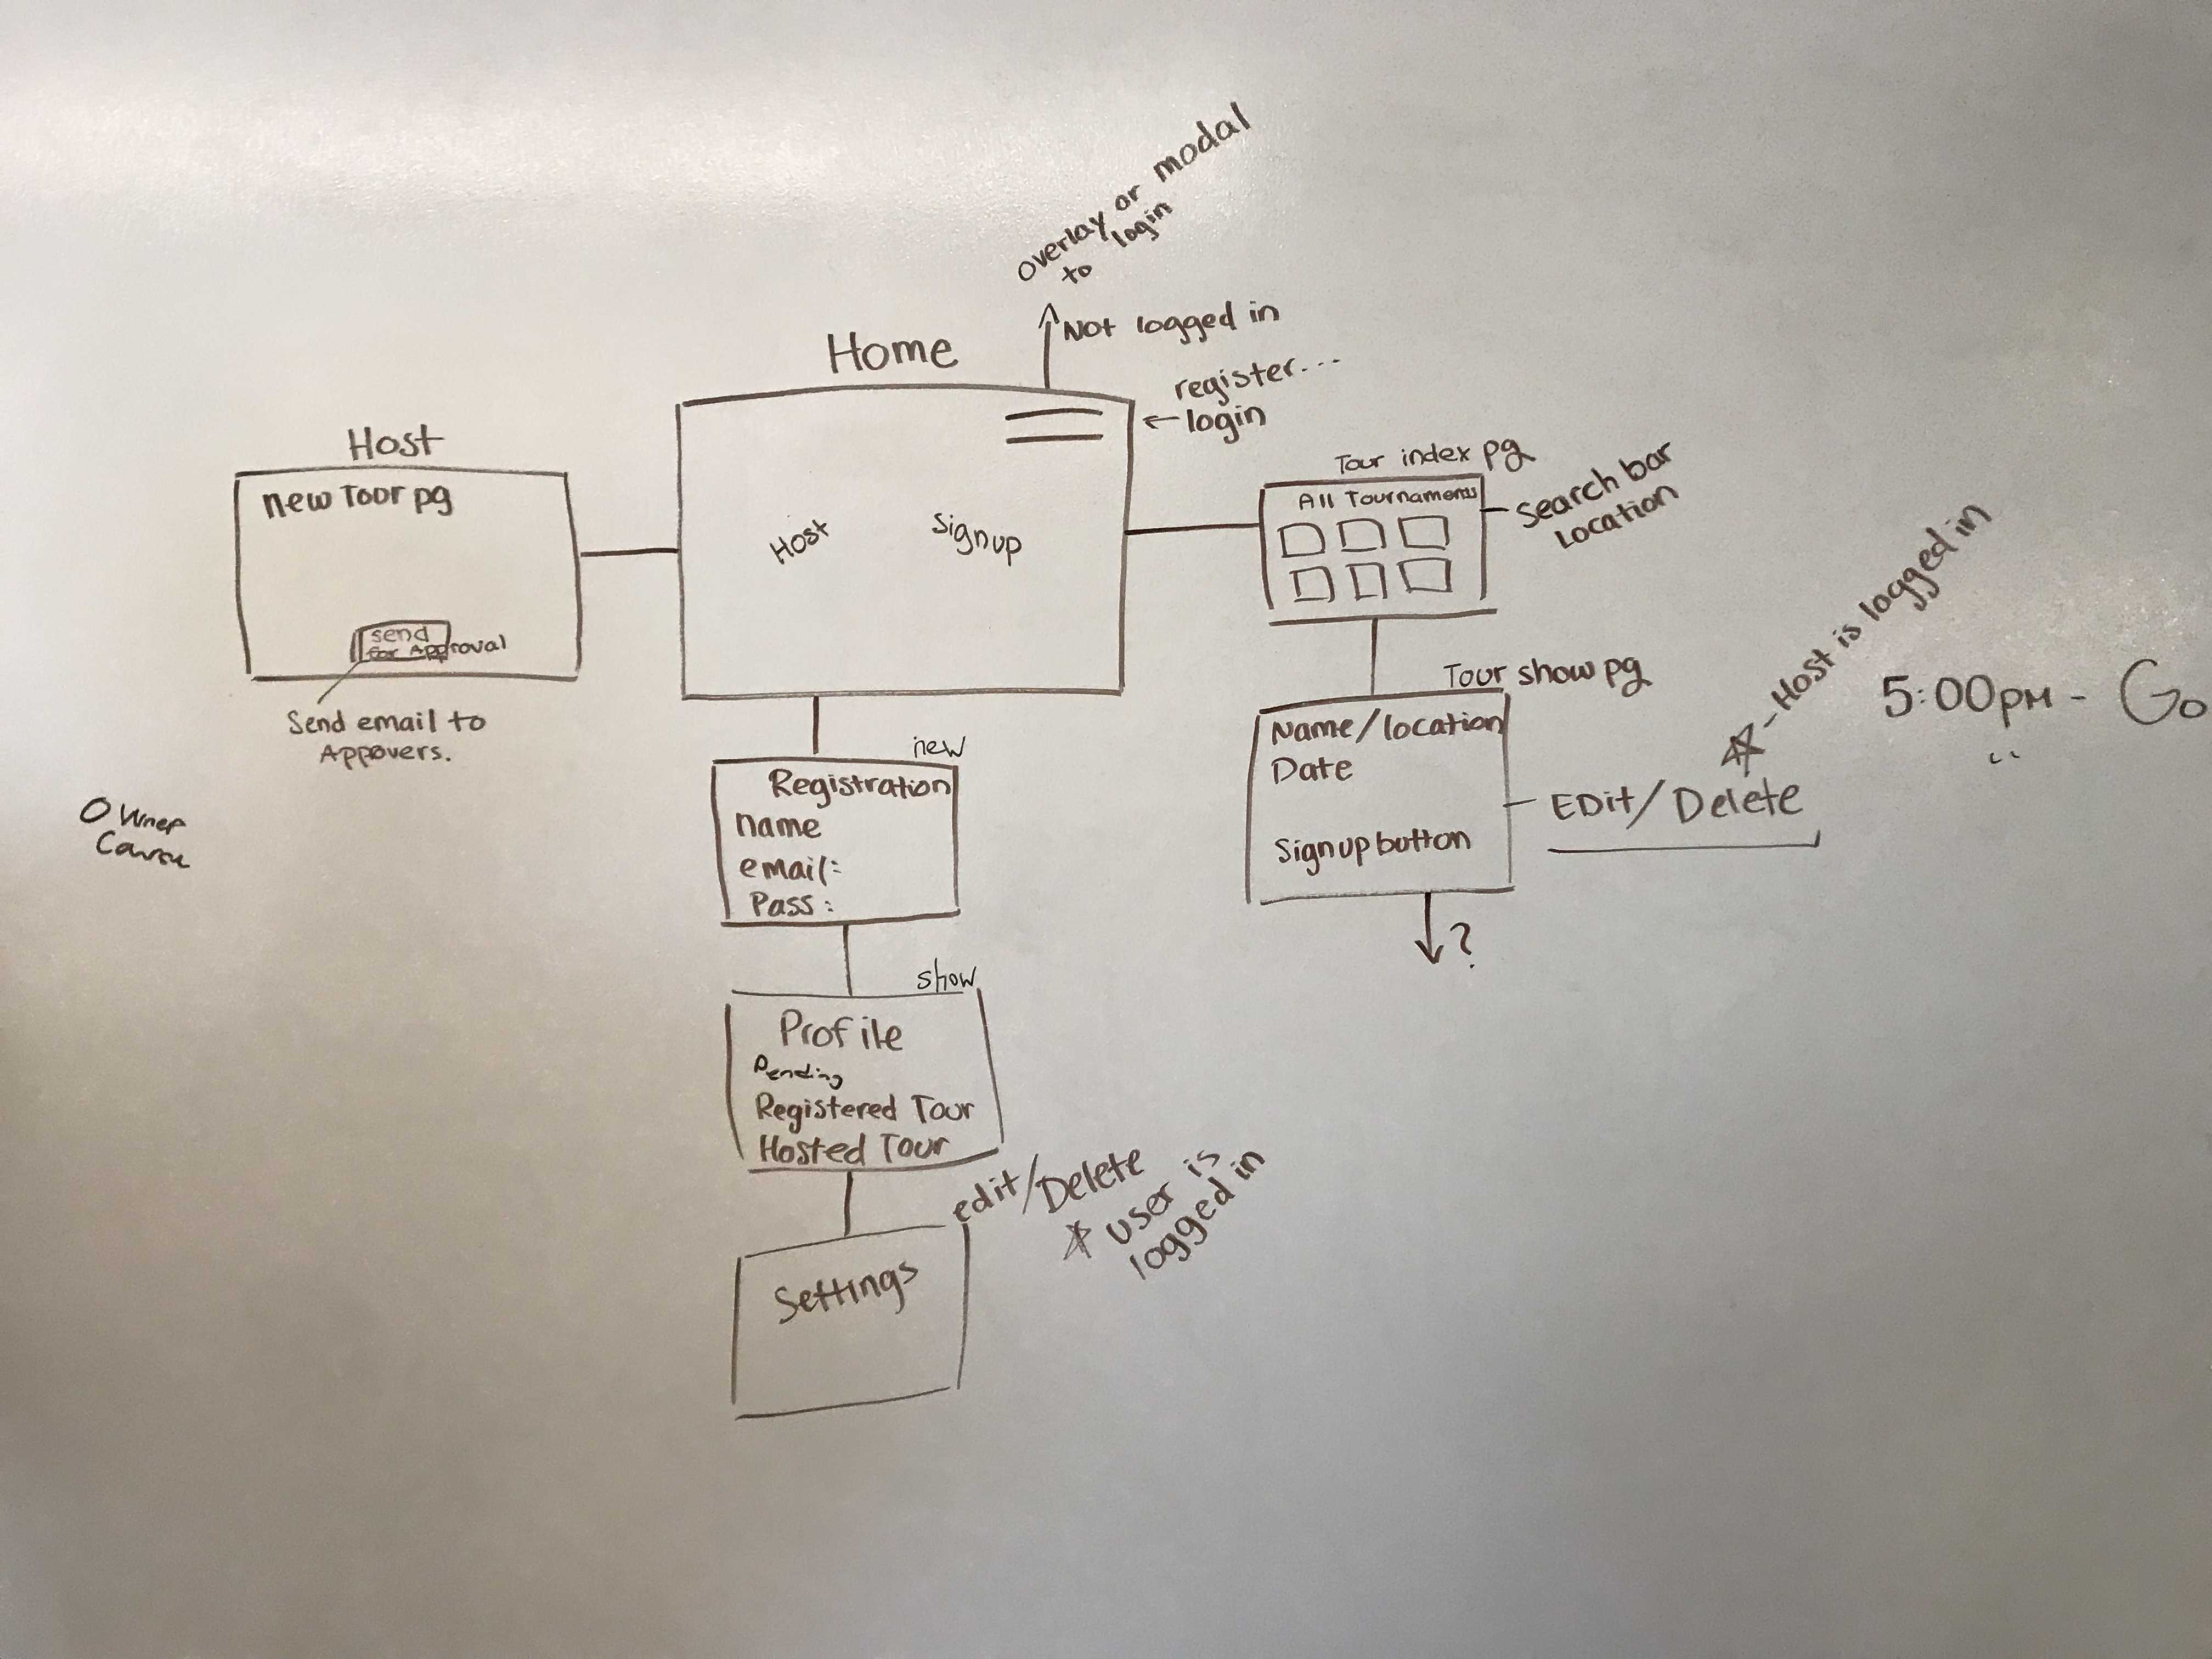 overlay or modal
to login
Not logged in
Home
register...
login
Host
new Tour pg
send
for Approval
Send email to
Appovers.
Host
Signup
Tour index pg
All Tournaments
Search bar
Location
Tour show pg
Name/location
Date
Signup button
EDit/Delete
Host is logged in
5:00pm - Go
?
Owner
new
Registration
name
email:
Pass:
show
Profile
Pending
Registered Tour
Hosted Tour
edit/Delete
* user is
logged in
Settings